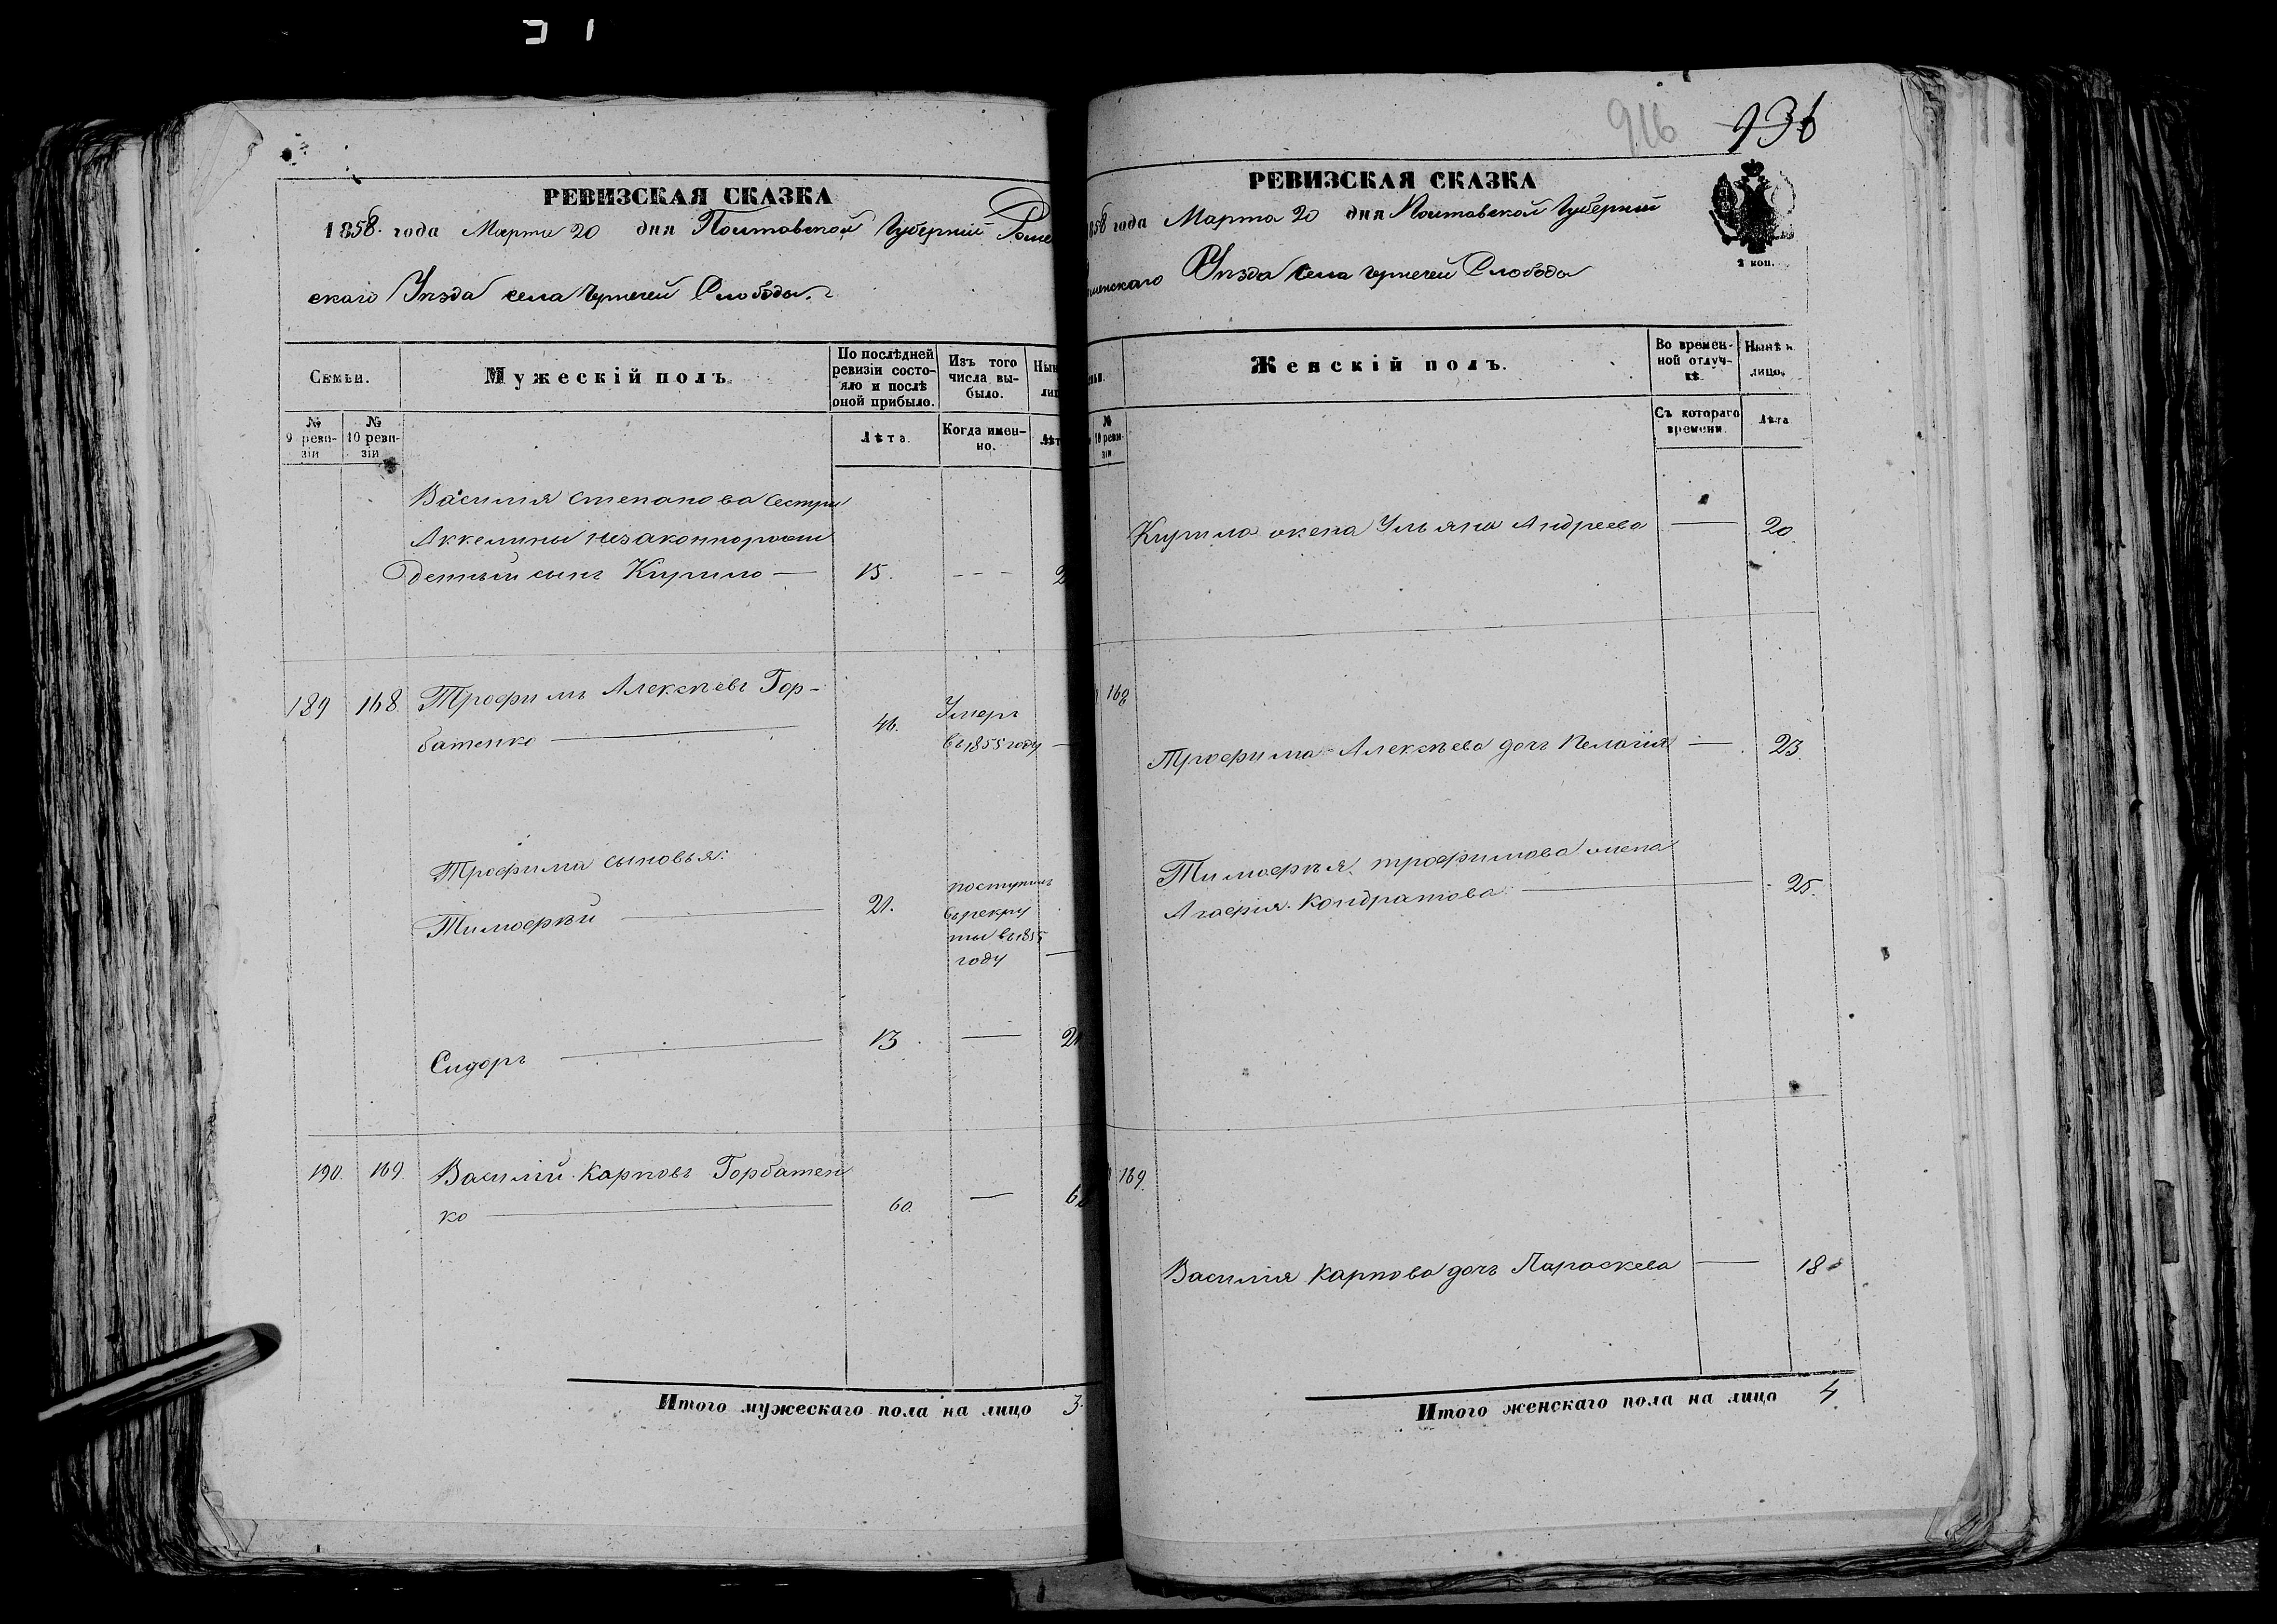 РЕВИЗСКАЯ СКАЗКА
1858 года Марта 20 дня Полтавской Губерніи Роме
скаго Уѣзда села Чернечей Слободы
Семьи.
Мужескій полъ.
По послѣдней ревизіи состо-
яло и послѣ оной прибыло.
Изъ того числа вы-
было.
№ 9 реви-
зіи
№ 10 реви-
зіи
Лѣта.
Когда имен-
но.
Василія Степанова сестры
Аккелины незаконнорож
денный сынъ Кирило — 15. - - -
189 168. Трофимъ Алексѣевъ Гор-
батенко — 46. Умеръ
въ 1855 году —
Трофима сыновья:
Тимофѣй — 21. поступилъ
въ рекру
ты въ 1855
году —
Сидоръ — 13 — 21
190. 169. Василій Карповъ Горбатен
ко — 60. —
Итого мужескаго пола на лицо 3.
916 936
РЕВИЗСКАЯ СКАЗКА
1858 года Марта 20 дня Полтавской Губерніи
менскаго Уѣзда села Чернечей Слободы
2 коп.
Женскій полъ.
Во времен-
ной отлуч-
кѣ.
Нынѣ н
лицо.
№ 10 реви-
зіи
Съ котораго
времени.
Лѣта
Кирила жена Ульяна Андреева — 20.
168
Трофима Алексѣева дочь Пелагія — 23.
Тимофѣя Трофимова жена
Агафія Кондратова — 25.
169.
Василія Карпова дочь Параскева — 18
Итого женскаго пола на лицо 4.